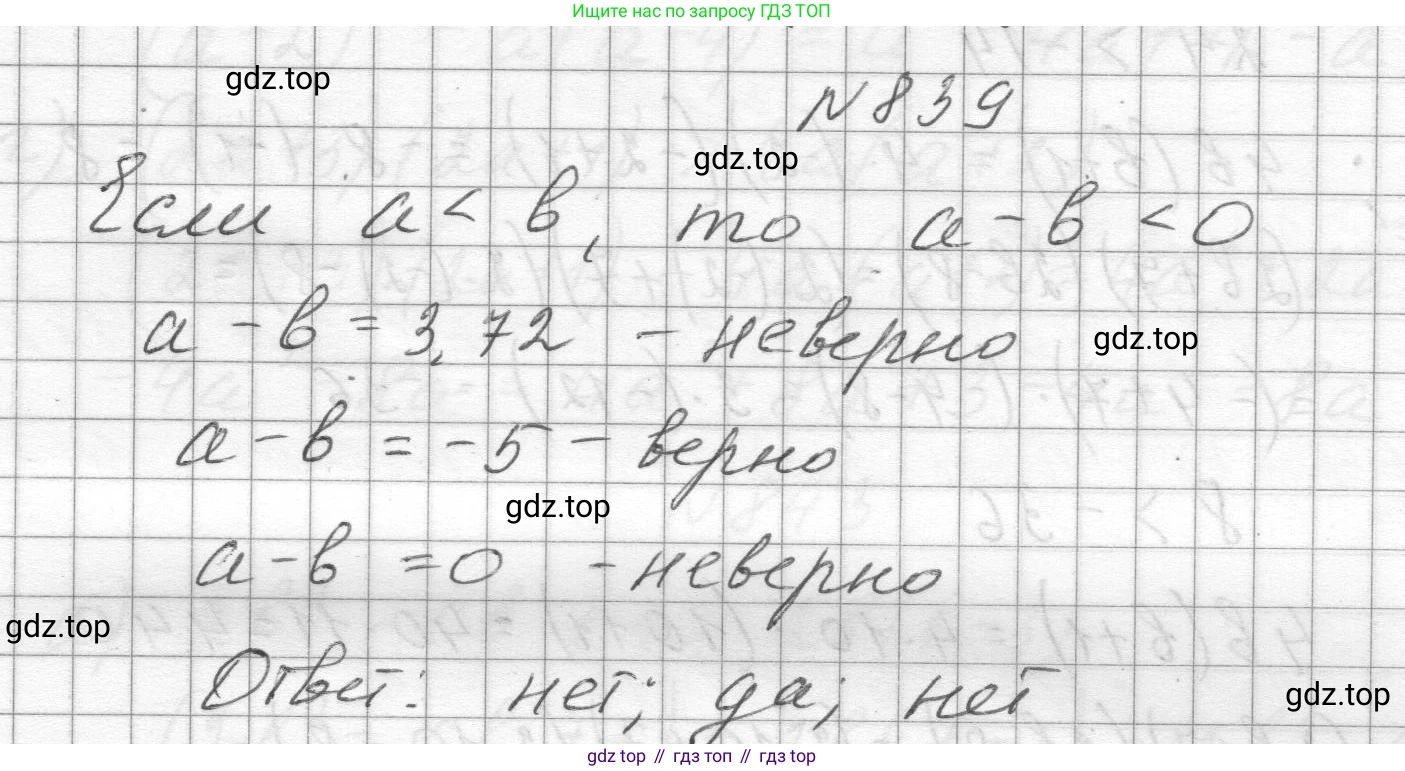 Ищите нас по запросу ГДЗ ТОП
gdz.top
N 839
gdz.top
Если a < b, то a - b < 0
a - b = 3,72 - неверно
gdz.top
a - b = -5 - верно
gdz.top
a - b = 0 - неверно
gdz.top
Ответ: нет; да; нет
gdz.top
gdz top // гдз топ // гдз top